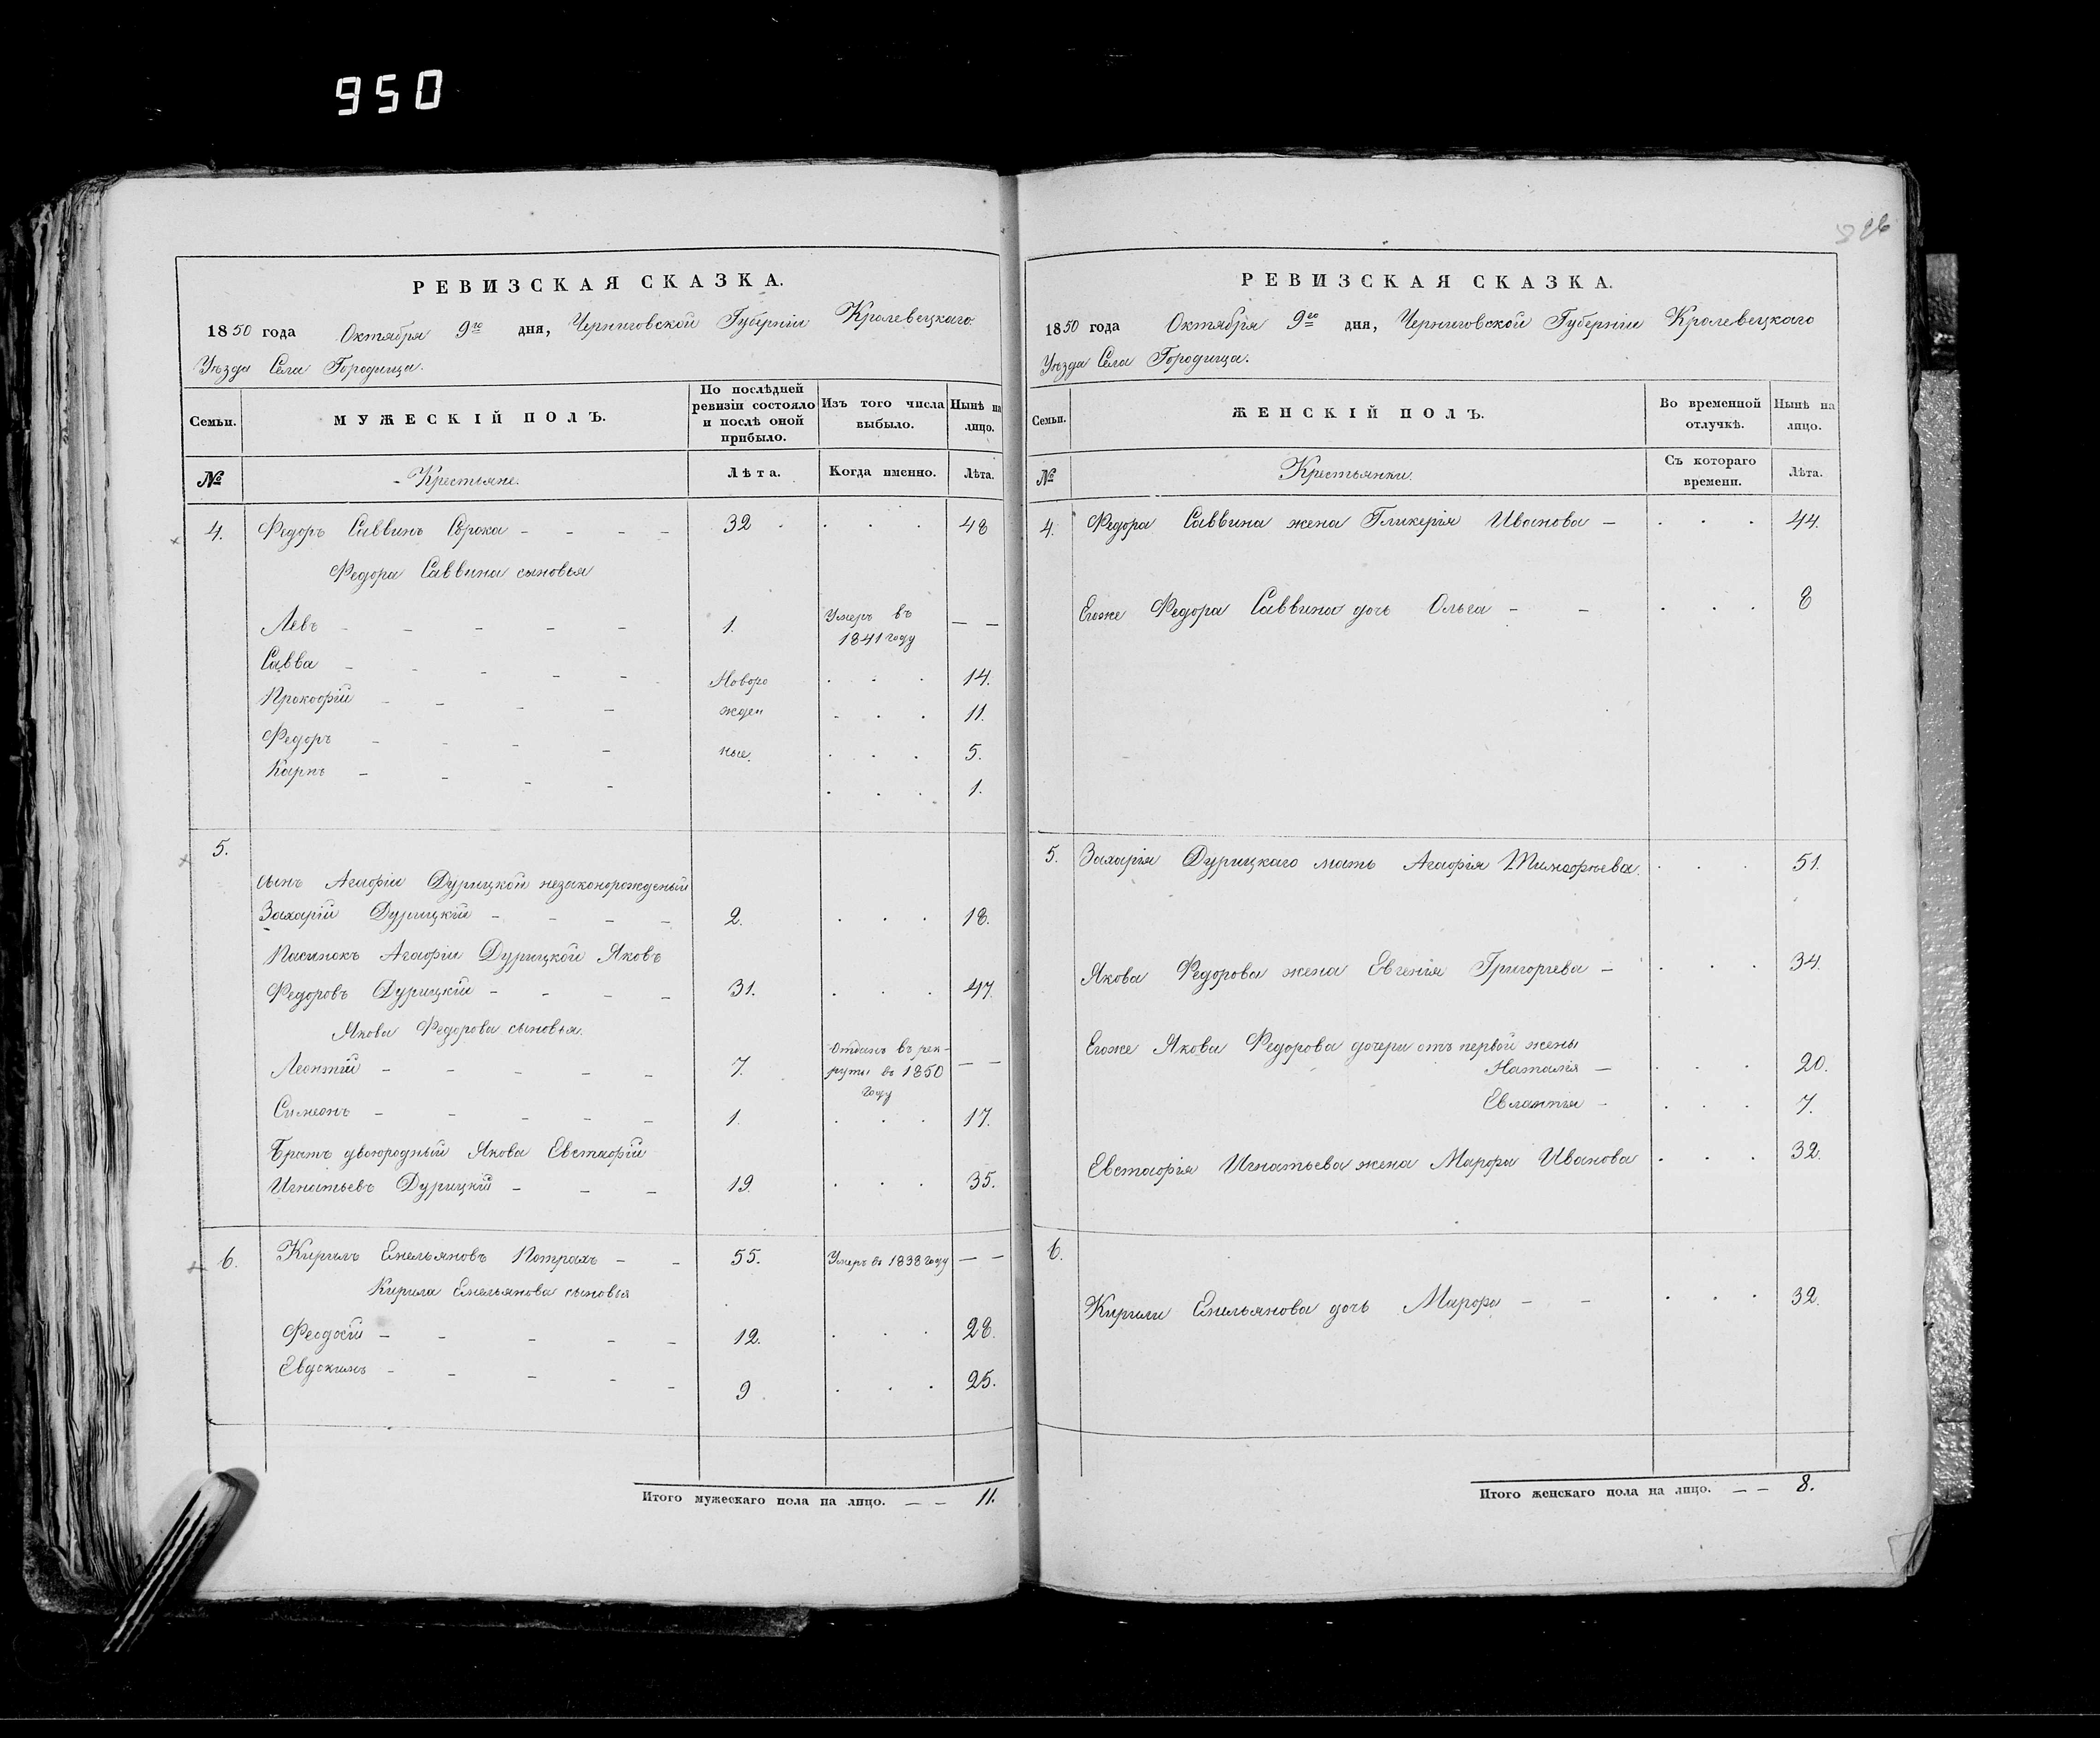 950
326
РЕВИЗСКАЯ СКАЗКА.
1850 года Октября 9го дня, Черниговской Губерніи Кролевецкаго
Уѣзда Села Городища.
Семьи.
МУЖЕСКІЙ ПОЛЪ.
По послѣдней ревизіи состояло и послѣ оной прибыло.
Изъ того числа выбыло.
Нынѣ на лицо.
№
Крестьяне.
Лѣта.
Когда именно.
Лѣта.
4. Федоръ Саввинъ Сорока 32 48
Федора Саввина сыновья
Левъ 1. Умеръ въ 1841 году
Савва Новоро 14.
Прокофій жден 11.
Федоръ ные. 5.
Карпъ 1.
5.
сынъ Агафіи Дурицкой незаконорожденый
Захарій Дурицкій 2. 18.
Пасинокъ Агафіи Дурицкой Яковъ
Федоровъ Дурицкій 31. 47.
Якова Федорова сыновья.
Леонтій 7. Отданъ въ рек-
руты въ 1850
году
Симеонъ 1. 17.
Братъ двоюродный Якова Евстафій
Игнатьевъ Дурицкій 19. 35.
6. Кирилъ Емельяновъ Потрахъ 55. Умеръ въ 1838 году
Кирила Емельянова сыновья
Феодосій 12. 28.
Евдокимъ 9 25.
Итого мужескаго пола на лицо. 11.
РЕВИЗСКАЯ СКАЗКА.
1850 года Октября 9го дня, Черниговской Губерніи Кролевецкаго
Уѣзда Села Городища.
Семьи.
ЖЕНСКІЙ ПОЛЪ.
Во временной отлучкѣ.
Нынѣ на лицо.
№
Крестьянки.
Съ котораго времени.
Лѣта.
4. Федора Саввина жена Гликерія Иванова 44.
Егоже Федора Саввина дочь Ольга 8
5. Захарія Дурицкаго мать Агафія Тимофѣева. 51.
Якова Федорова жена Евгенія Григорьева 34.
Егоже Якова Федорова дочери отъ первой жены
Наталія 20.
Евлампія 7.
Евстафія Игнатьева жена Марфа Иванова 32.
6.
Кирила Емельянова дочь Марфа 32.
Итого женскаго пола на лицо. 8.